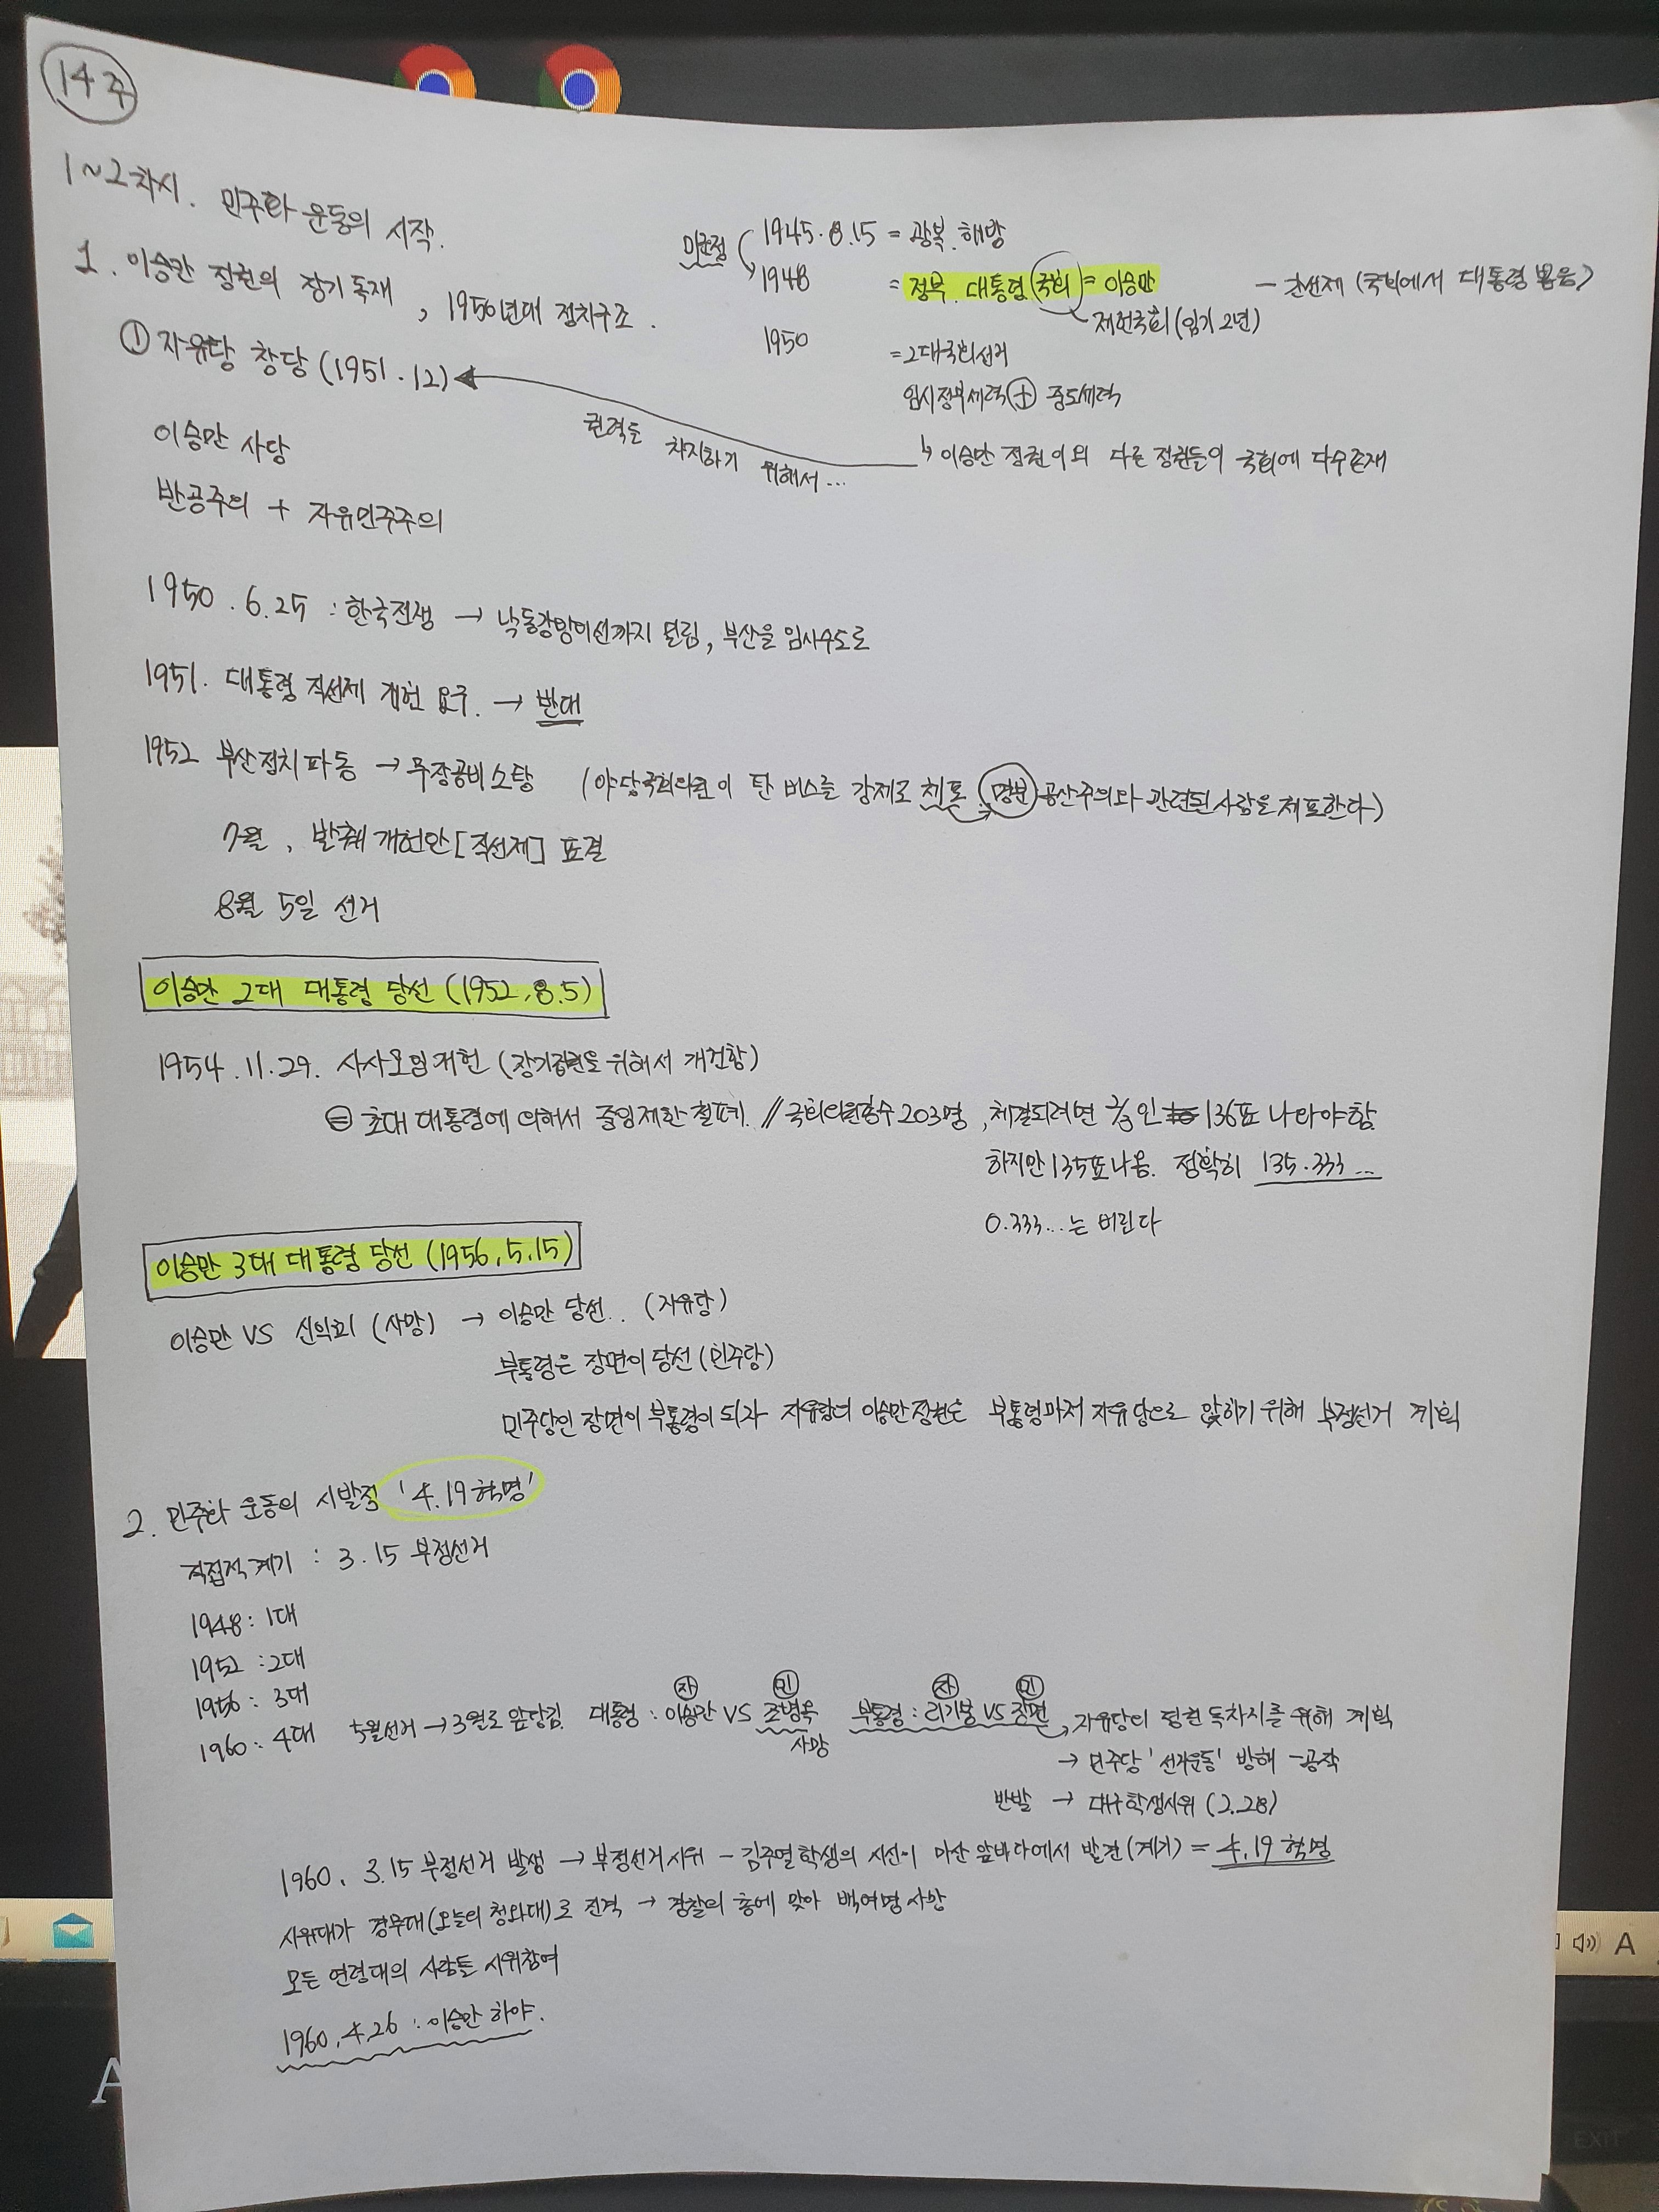 14주
1~2차시. 민주화 운동의 시작.
1. 이승만 정권의 장기독재, 1950년대 정치구조.
① 자유당 창당 (1951.12)
이승만 사당
반공주의 + 자유민주주의
미군정
1945.8.15 = 광복. 해방
1948 = 정부. 대통령 (국회) = 이승만 - 간선제 (국회에서 대통령 뽑음)
제헌국회 (임기 2년)
1950 = 2대국회선거
임시정부세력 + 중도세력
↳ 이승만 정권 이외 다른 정권들이 국회에 다수존재
권력을 차지하기 위해서...
1950.6.25 : 한국전쟁 → 낙동강방어선까지 밀림, 부산을 임시수도로
1951. 대통령 직선제 개헌 요구. → 반대
1952 부산정치파동 → 무장공비소탕 (야당국회의원이 탄 버스를 강제로 체포 명분 공산주의와 관련된 사람을 체포한다)
7월, 발췌개헌안 [직선제] 표결
8월 5일 선거
이승만 2대 대통령 당선 (1952.8.5)
1954.11.29. 사사오입개헌 (장기집권을 위해서 개헌함)
= 초대 대통령에 의해서 중임제한 철폐. // 국회의원총수 203명, 체결되려면 2/3인 136표 나와야함
하지만 135표나옴. 정확히 135.333...
0.333...는 버린다
이승만 3대 대통령 당선 (1956.5.15)
이승만 VS 신익희 (사망) → 이승만 당선.. (자유당)
부통령은 장면이 당선 (민주당)
민주당인 장면이 부통령이 되자 자유당의 이승만정권은 부통령마저 자유당으로 앉히기 위해 부정선거 계획
2. 민주화 운동의 시발점 '4.19 혁명'
직접적계기 : 3.15 부정선거
1948 : 1대
1952 : 2대
1956 : 3대
1960 : 4대 5월선거 → 3월로 앞당김. 대통령 : 이승만 VS 조병옥 부통령 : 리기붕 VS 장면
자 민 자 민
사망
자유당의 정권 독차지를 위해 계획
→ 민주당 '선거운동' 방해 - 공작
반발 → 대구학생시위 (2.28)
1960. 3.15 부정선거 발생 → 부정선거시위 - 김주열학생의 시신이 마산 앞바다에서 발견 (계기) = 4.19 혁명
시위대가 경무대 (오늘의 청와대)로 진격 → 경찰의 총에 맞아 백여명 사망
모든 연령대의 사람들 시위참여
1960.4.26 : 이승만 하야.
A
A
EXIT